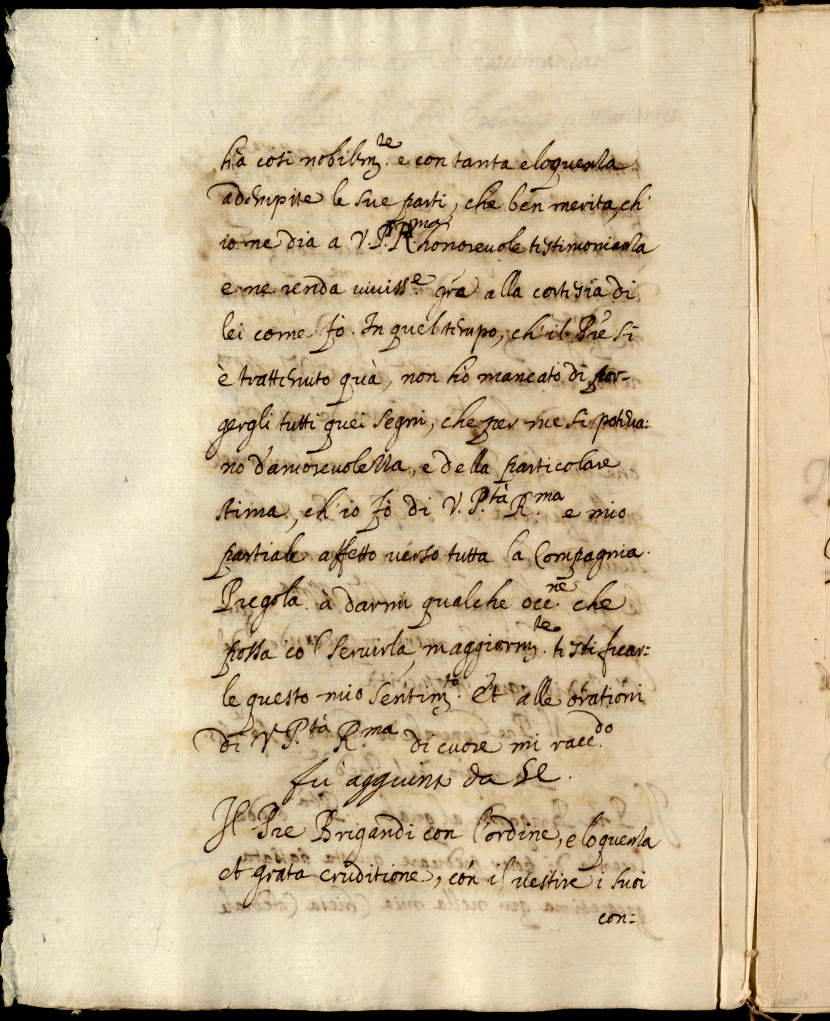 hà così nobilm.te e con tanta eloquenza
adempite le sue parti, che ben merita, ch'
io ne dia a V. P. R.ma honoreuole testimonianza
e ne renda viuiss.e gra alla cortesia di
lei come fò. In quel tempo, ch'il Pre si
è trattenuto quà, non hò mancato di por-
gergli tutti quei segni, che per me si poteua:
no d'amoreuolezza, e della particolare
stima, ch'io fò di V. P.tà R.ma e mio
partiale affetto verso tutta la Compagnia.
Pregola à darmi qualche occ.ne che
possa co'l seruirla maggiorm.te testificar:
le questo mio sentim.to. Et alle orationi
di V. P.tà R.ma di cuore mi racc.do
fu' aggiunta da SE.
Il Pre Brigandi con l'ordine, eloquenza
et grata eruditione, con il vestire i suoi
con=